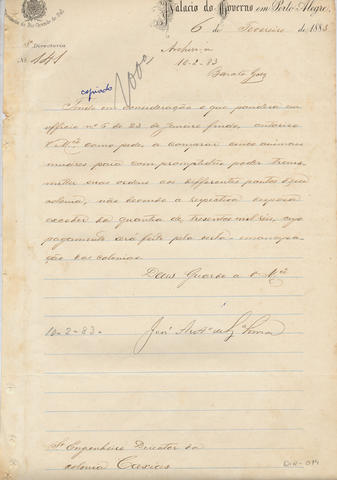 Palacio do Governo em Porto Alegre,
6 de Fevereiro de 1883
3ª Directoria
Nº 141
Archive-se
10-2-83
Barata Góes
copiado
Tendo em consideração o que pondera em
officio nº 5 de 23 de Janeiro findo, autoriso
V. Mcê como pede, a comprar dous animaes
muares para com promptidão poder trans-
mittir suas ordens aos differentes pontos d'essa
colonia, não devendo a respectiva despeza
exceder da quantia de tresentos mil réis, cujo
pagamento será feito pela verba - emancipa-
ção das colonias.
Deus Guarde a V. Mcê
10-2-83-
José Antº de
Sr Engenheiro Director da
colonia Caxias